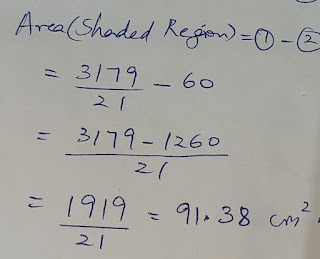 Area(Shaded Region) = ① - ②
= 3179/21 - 60
= 3179-1260/21
= 1919/21 = 91.38 cm².